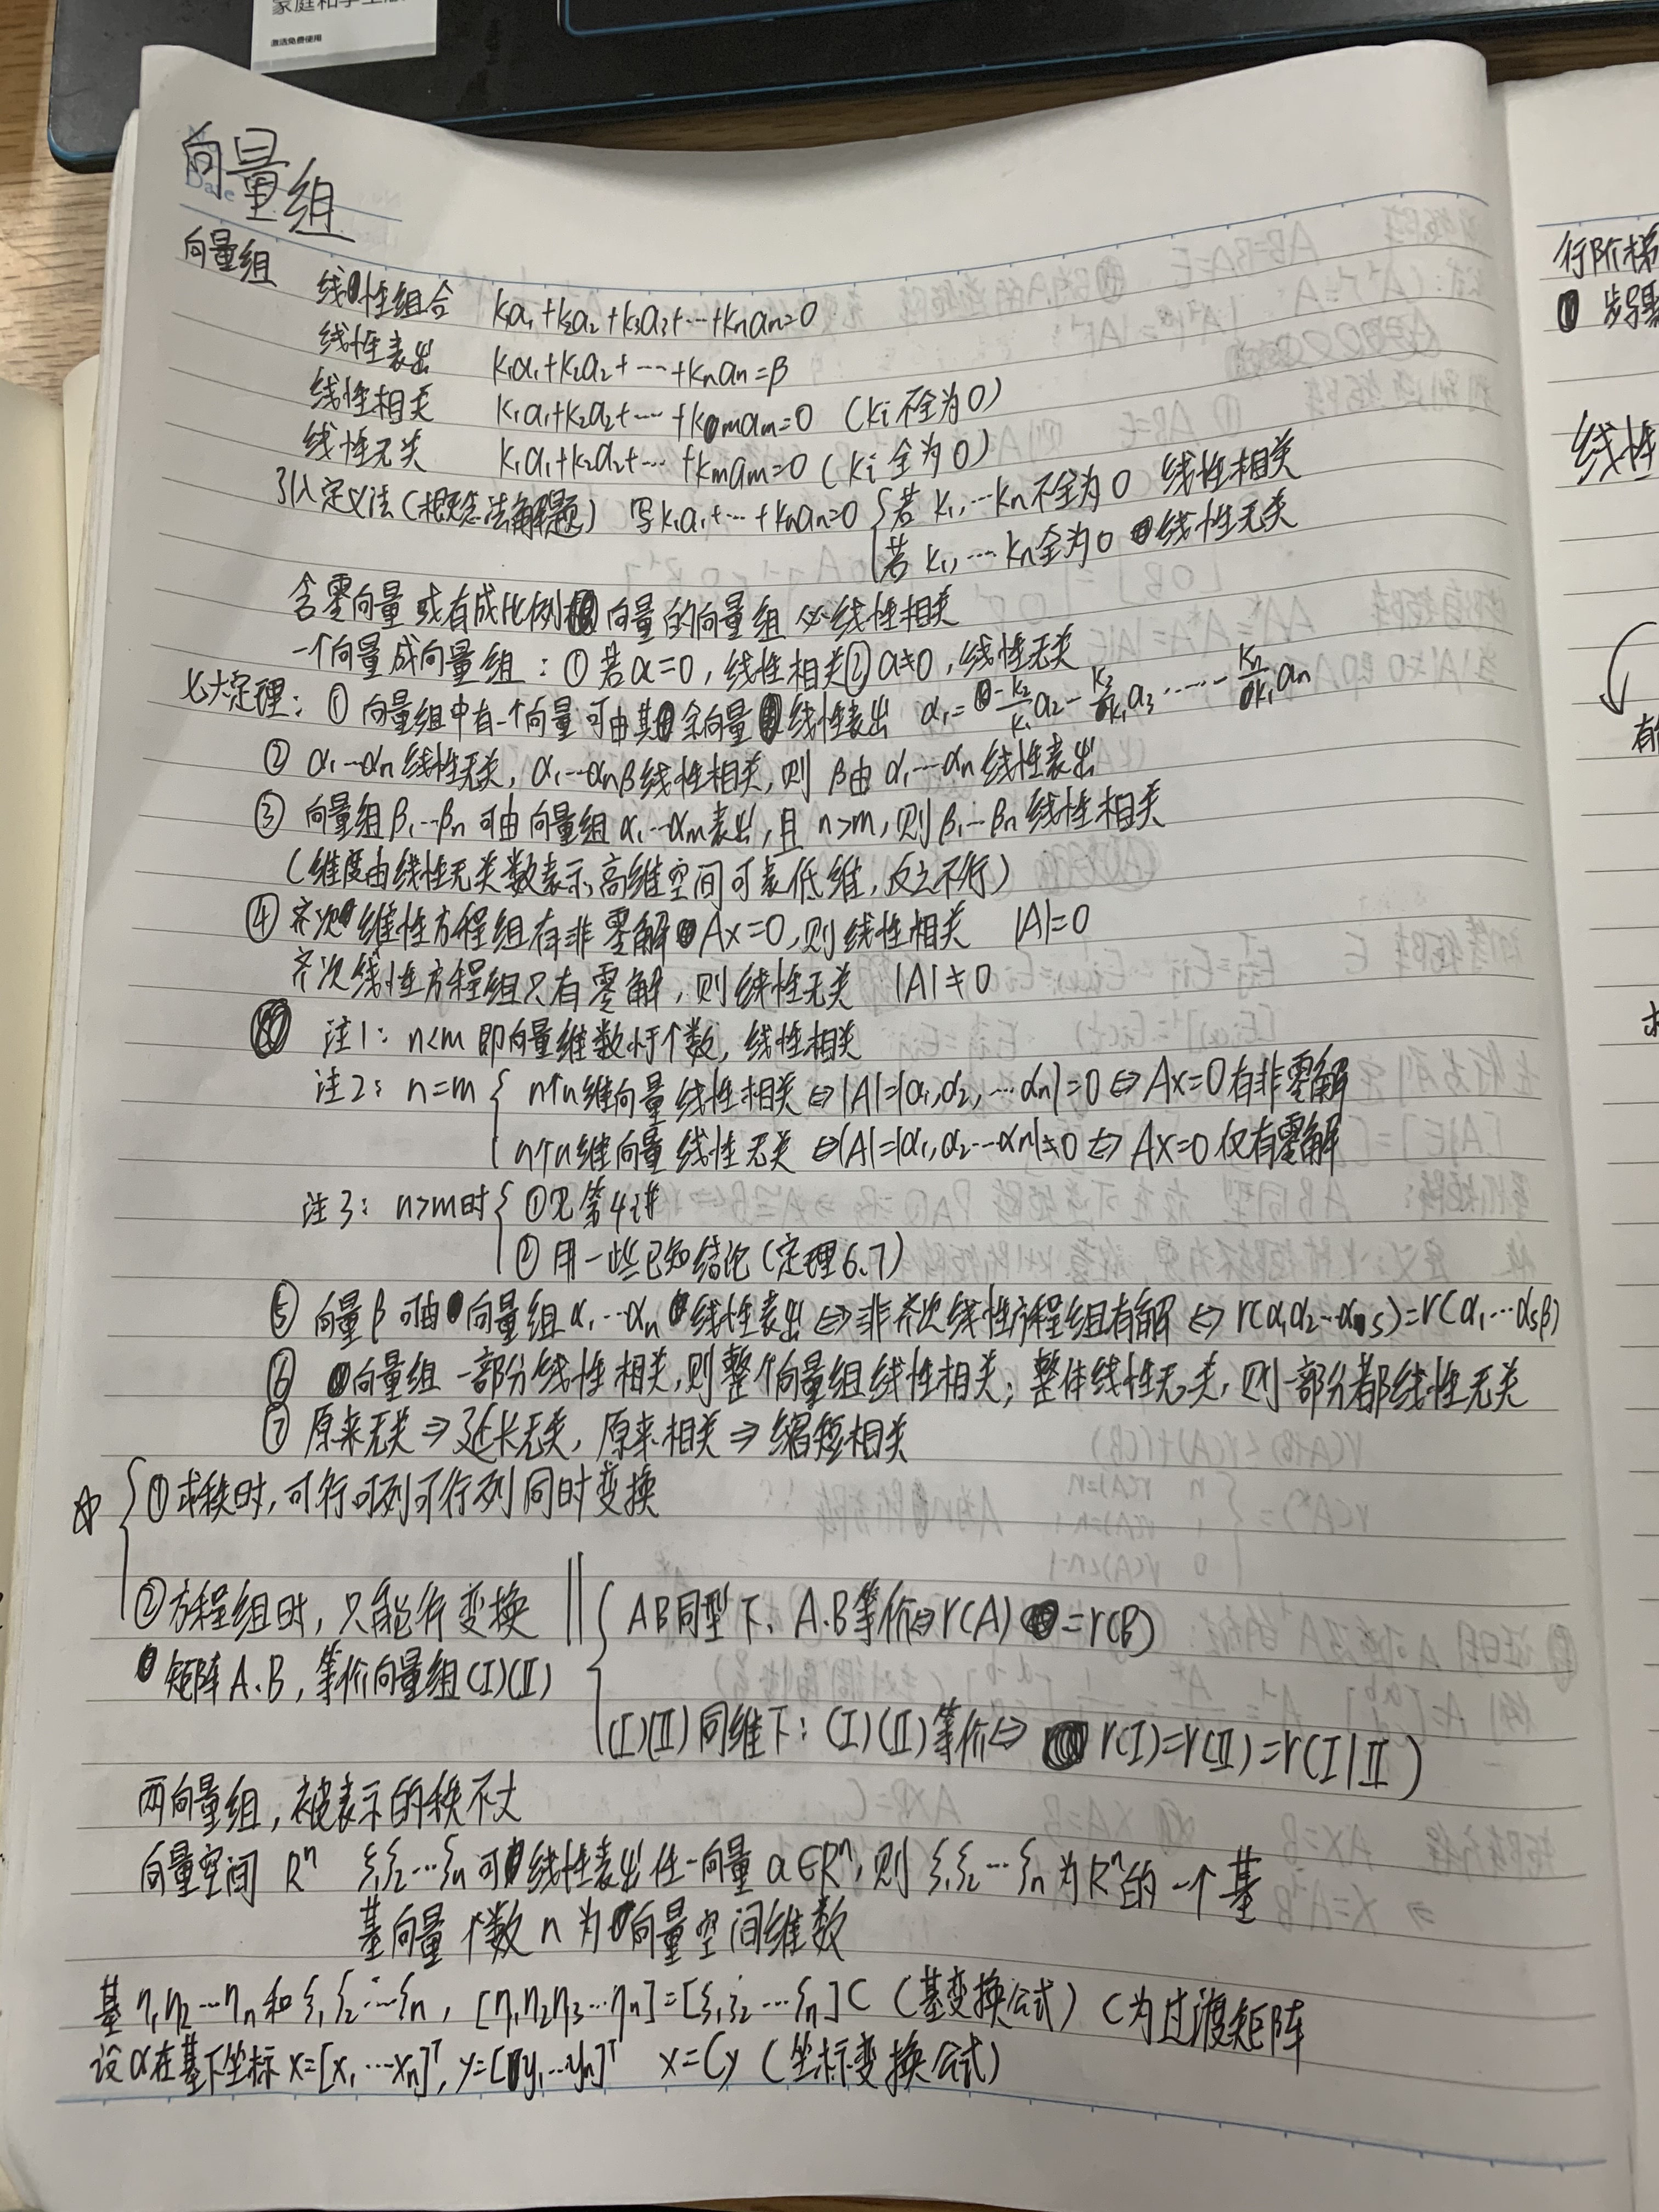 家庭和学生版
激活免费使用
向量组
Date
向量组
线性组合 k₁α₁+k₂α₂+k₃α₃+…+knαn=0
线性表出 k₁α₁+k₂α₂+…+knαn=β
线性相关 k₁α₁+k₂α₂+…+kmαm=0 (ki不全为0)
线性无关 k₁α₁+k₂α₂+…+kmαm=0 (ki全为0)
引入定义法(概念法解题) 写k₁α₁+…+knαn=0 {若 k₁,…kn不全为0 线性相关
若 k₁,…kn全为0 线性无关
含零向量或有成比例向量的向量组必线性相关
一个向量成向量组: ①若α=0,线性相关②α≠0,线性无关
七大定理: ① 向量组中有一个向量可由其余向量线性表出 α₁=-k₂/k₁α₂-k₃/k₁α₃……-kn/k₁αn
② α₁…αn线性无关, α₁…αnβ线性相关,则 β由 α₁…αn 线性表出
③ 向量组β₁…βn可由向量组 α₁…αm表出,且 n>m,则β₁…βn线性相关
(维度由线性无关数表示,高维空间可表低维,反之不行)
④ 齐次线性方程组有非零解Ax=0,则线性相关 |A|=0
齐次线性方程组只有零解,则线性无关 |A|≠0
注1: n<m 即向量维数小于个数, 线性相关
注2: n=m { n个n维向量线性相关⇔|A|=|α₁,α₂,…αn|=0⇔Ax=0有非零解
n个n维向量线性无关⇔|A|=|α₁,α₂…αn|≠0⇔Ax=0仅有零解
注3: n>m时{ ①见第4讲
②用一些已知结论(定理6、7)
⑤ 向量β可由向量组α₁…αn线性表出⇔非齐次线性方程组有解⇔r(α₁α₂…αs)=r(α₁…αsβ)
⑥ 向量组一部分线性相关,则整个向量组线性相关;整体线性无关,则一部分都线性无关
⑦ 原来无关⇒延长无关, 原来相关⇒缩短相关
☆ { ①求秩时,可行可列可行列同时变换
②方程组时,只能行变换 || { AB同型下、A.B等价⇔r(A)=r(B)
矩阵A.B,等价向量组(I)(II)
(I)(II)同维下:(I)(II)等价⇔ r(I)=r(II)=r(I|II)
两向量组,被表示的秩不大
向量空间 Rⁿ ξ₁ξ₂…ξn可线性表出任一向量α∈Rⁿ,则ξ₁ξ₂…ξn为Rⁿ的一个基
基向量个数n为向量空间维数
基η₁η₂…ηn和ξ₁ξ₂…ξn, [η₁η₂η₃…ηn]=[ξ₁ξ₂…ξn]C (基变换公式) C为过渡矩阵
设α在基下坐标 x=[x₁…xn]ᵀ, y=[y₁…yn]ᵀ x=Cy (坐标变换公式)
行阶梯
① 步骤
线性